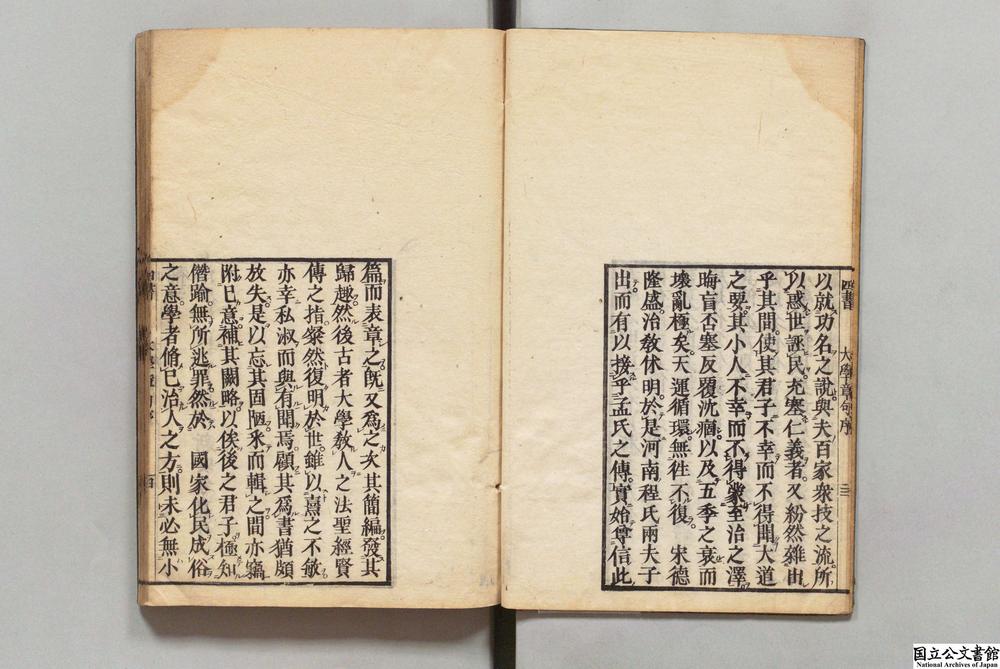 四書 大學章句序 三
以就功名之說與夫百家衆技之流所
以惑世誣民充塞仁義者又紛然雜出
乎其間使其君子不幸而不得聞大道
之要其小人不幸而不得蒙至治之澤
晦盲否塞反覆沈痼以及五季之衰而
壞亂極矣天運循環無徃不復 宋德
隆盛治敎休明於是河南程氏兩夫子
出而有以接乎孟氏之傳實始尊信此
篇而表章之旣又爲之次其簡編發其
歸趣然後古者大學敎人之法聖經賢
傳之指粲然復明於世雖以熹之不敏
亦幸私淑而與有聞焉顧其爲書猶頗
放失是以忘其固陋釆而輯之間亦竊
附已意補其闕略以俟後之君子極知
僭踰無所逃罪然於 國家化民成俗
之意學者脩已治人之方則未必無小
国立公文書館
National Archives of Japan